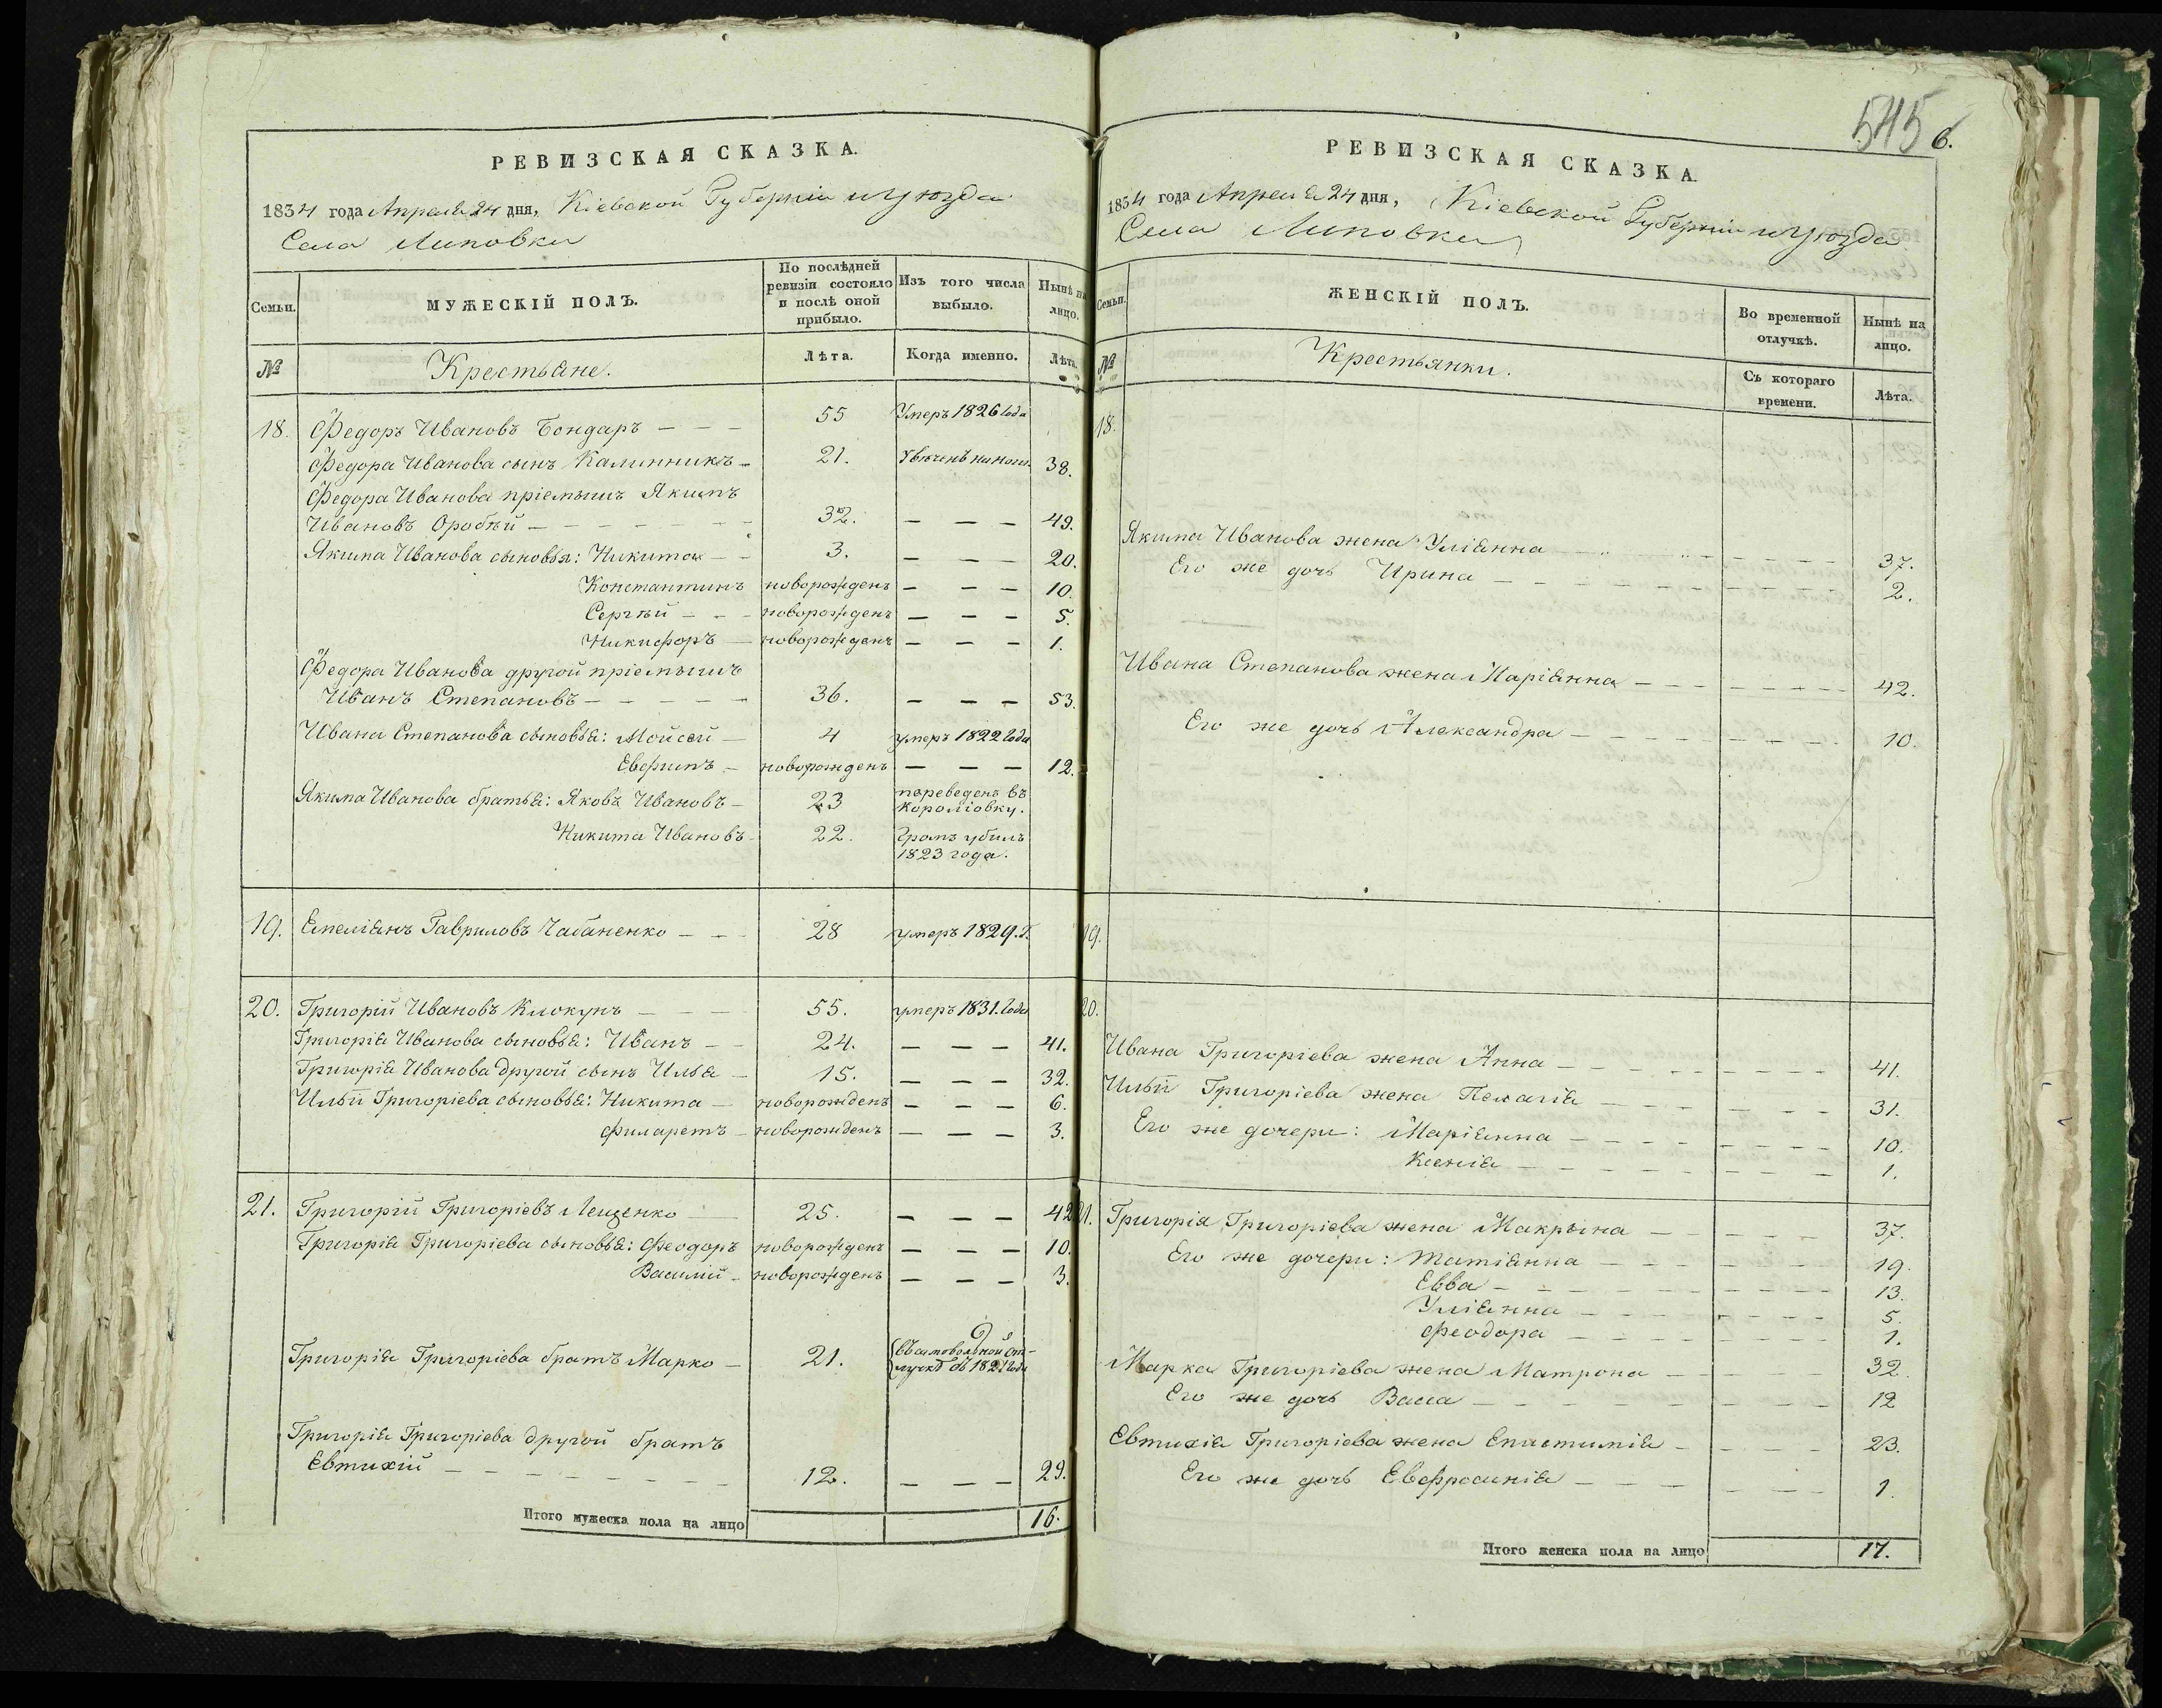 РЕВИЗСКАЯ СКАЗКА.
1834 года Апреля 24 дня, Кіевской Губерніи и уѣзда
Села Липовки
Семьи.
МУЖЕСКІЙ ПОЛЪ.
По послѣдней ревизіи состояло и послѣ оной прибыло.
Изъ того числа выбыло.
Нынѣ на лицо.
№
Крестьяне.
Лѣта.
Когда именно.
Лѣта.
18. Федоръ Ивановъ Бондаръ — — — 55 Умеръ 1826 года
Федора Иванова сынъ Калинникъ — 21. 38.
Федора Иванова пріемышъ Якимъ
Ивановъ Оробѣй — — — 32. — — — 49.
Якима Иванова сыновья: Никита — — 3. — — — 20.
Константинъ новорожденъ — — — 10.
Сергѣй — — новорожденъ — — — 5.
Никифоръ — новорожденъ — — — 1.
Федора Иванова другой пріемышъ
Иванъ Степановъ — — — — 36. — — — 53.
Ивана Степанова сыновья: Мойсей — 4 умеръ 1822 года
Евфимъ — новорожденъ — — — 12.
Якима Иванова братья: Яковъ Ивановъ — 23 переведенъ въ
Королівку.
Никита Ивановъ — 22. Громъ убилъ
1823 года.
19. Емеліянъ Гавриловъ Чабаненко — — 28 умеръ 1829. г.
20. Григорій Ивановъ Клокунъ — — — 55. умеръ 1831. года
Григорія Иванова сыновья: Иванъ — — 24. — — — 41.
Григорія Иванова другой сынъ Илья — 15. — — — 32.
Ильи Григоріева сыновья: Никита — новорожденъ — — — 6.
Филаретъ — новорожденъ — — — 3.
21. Григорій Григоріевъ Лещенко — 25. — — — 42
Григорія Григоріева сыновья: Феодоръ новорожденъ — — — 10.
Василій — новорожденъ — — — 3.
Григорія Григоріева братъ Марко — 21. въ самовольной от-
лучкѣ съ 1821 года
Григорія Григоріева другой братъ
Евтихій — — — — — — 12. — — — 29.
Итого мужеска пола на лицо 16.
545 6.
РЕВИЗСКАЯ СКАЗКА.
1834 года Апреля 24 дня, Кіевской Губерніи и уѣзда
Села Липовки
Семьи.
ЖЕНСКІЙ ПОЛЪ.
Во временной отлучкѣ.
Нынѣ на лицо.
№
Крестьянки.
Съ котораго времени.
Лѣта.
18.
Якима Иванова жена Уліянна — — — 37.
Его же дочь Ирина — — — 2.
Ивана Степанова жена Маріянна — — — 42.
Его же дочь Александра — — — 10.
19.
20.
Ивана Григоріева жена Анна — — — 41.
Ильи Григоріева жена Пелагія — — — 31.
Его же дочери: Маріянна — — — 10.
Ксенія — — — 1.
21. Григорія Григоріева жена Макрына — — — 37.
Его же дочери: Татіянна — — — 19.
Евва — — — 13.
Уліянна — — — 5.
Феодора — — — 1.
Марка Григоріева жена Матрона — — — 32.
Его же дочь Васса — — — 12
Евтихія Григоріева жена Епистимія — — — 23.
Его же дочь Евфросинія — — — 1.
Итого женска пола на лицо 17.